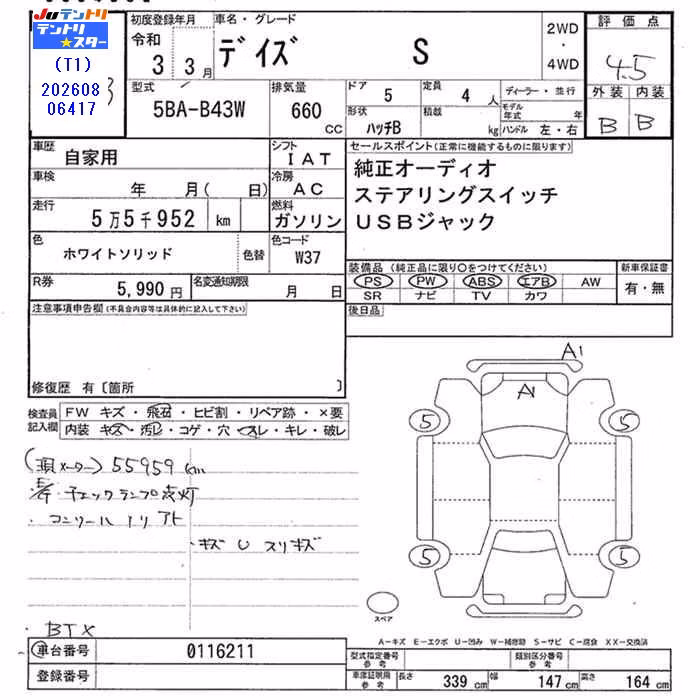 Juテントリ
テントリ★スター
(T1)
202608
06417
初度登録年月
令和
3 3月
車名・グレード
デイズ S
2WD
・
4WD
評価点
4.5
外装 内装
B B
型式
5BA-B43W
排気量
660 CC
ドア 5
定員 4 人
形状 ハッチB
積載 kg
ディーラー・並行
モデル年式 年
ハンドル 左・右
車歴 自家用
シフト IAT
車検 年 月( 日)
冷房 AC
走行 5万5千952 km
燃料 ガソリン
色 ホワイトソリッド 色替
色コード W37
R券 5,990円
名変通知期限 月 日
セールスポイント(正常に機能するものに限ります)
純正オーディオ
ステアリングスイッチ
USBジャック
装備品(純正品に限り○をつけてください)
PS PW ABS エアB AW
SR ナビ TV カワ
新車保証書
有・無
後日品
注意事項申告欄(不具合内容等は具体的に記入して下さい)
修復歴 有〔箇所 〕
検査員記入欄
FW キズ・飛石・ヒビ割・リペア跡・×要
内装 キズ・汚レ・コゲ・穴・スレ・キレ・破レ
(現メーター) 55959km
チェックランプ点灯
・キズ U スリキズ
・BTX
A1
A1
5 5
5 5
スペア
A-キズ E-エクボ U-凹み W-補修跡 S-サビ C-腐食 XX-交換済
車台番号 0116211
登録番号
型式指定番号 参考
類別区分番号 参考
車庫証明用 参考
長さ 339 cm 幅 147 cm 高さ 164 cm